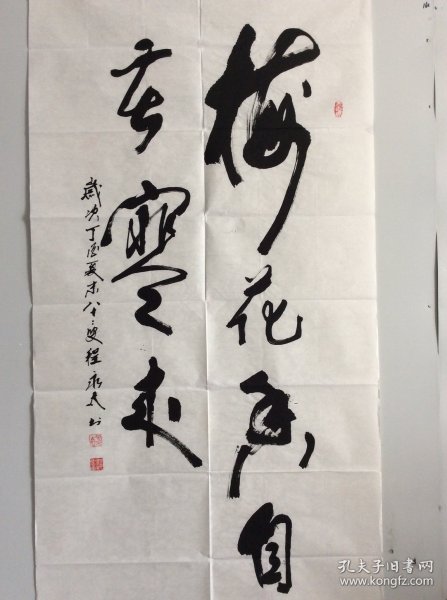 梅花香自
苦寒来
岁次丁酉夏末八十二叟程永文书
孔夫子旧书网
www.kongfz.com